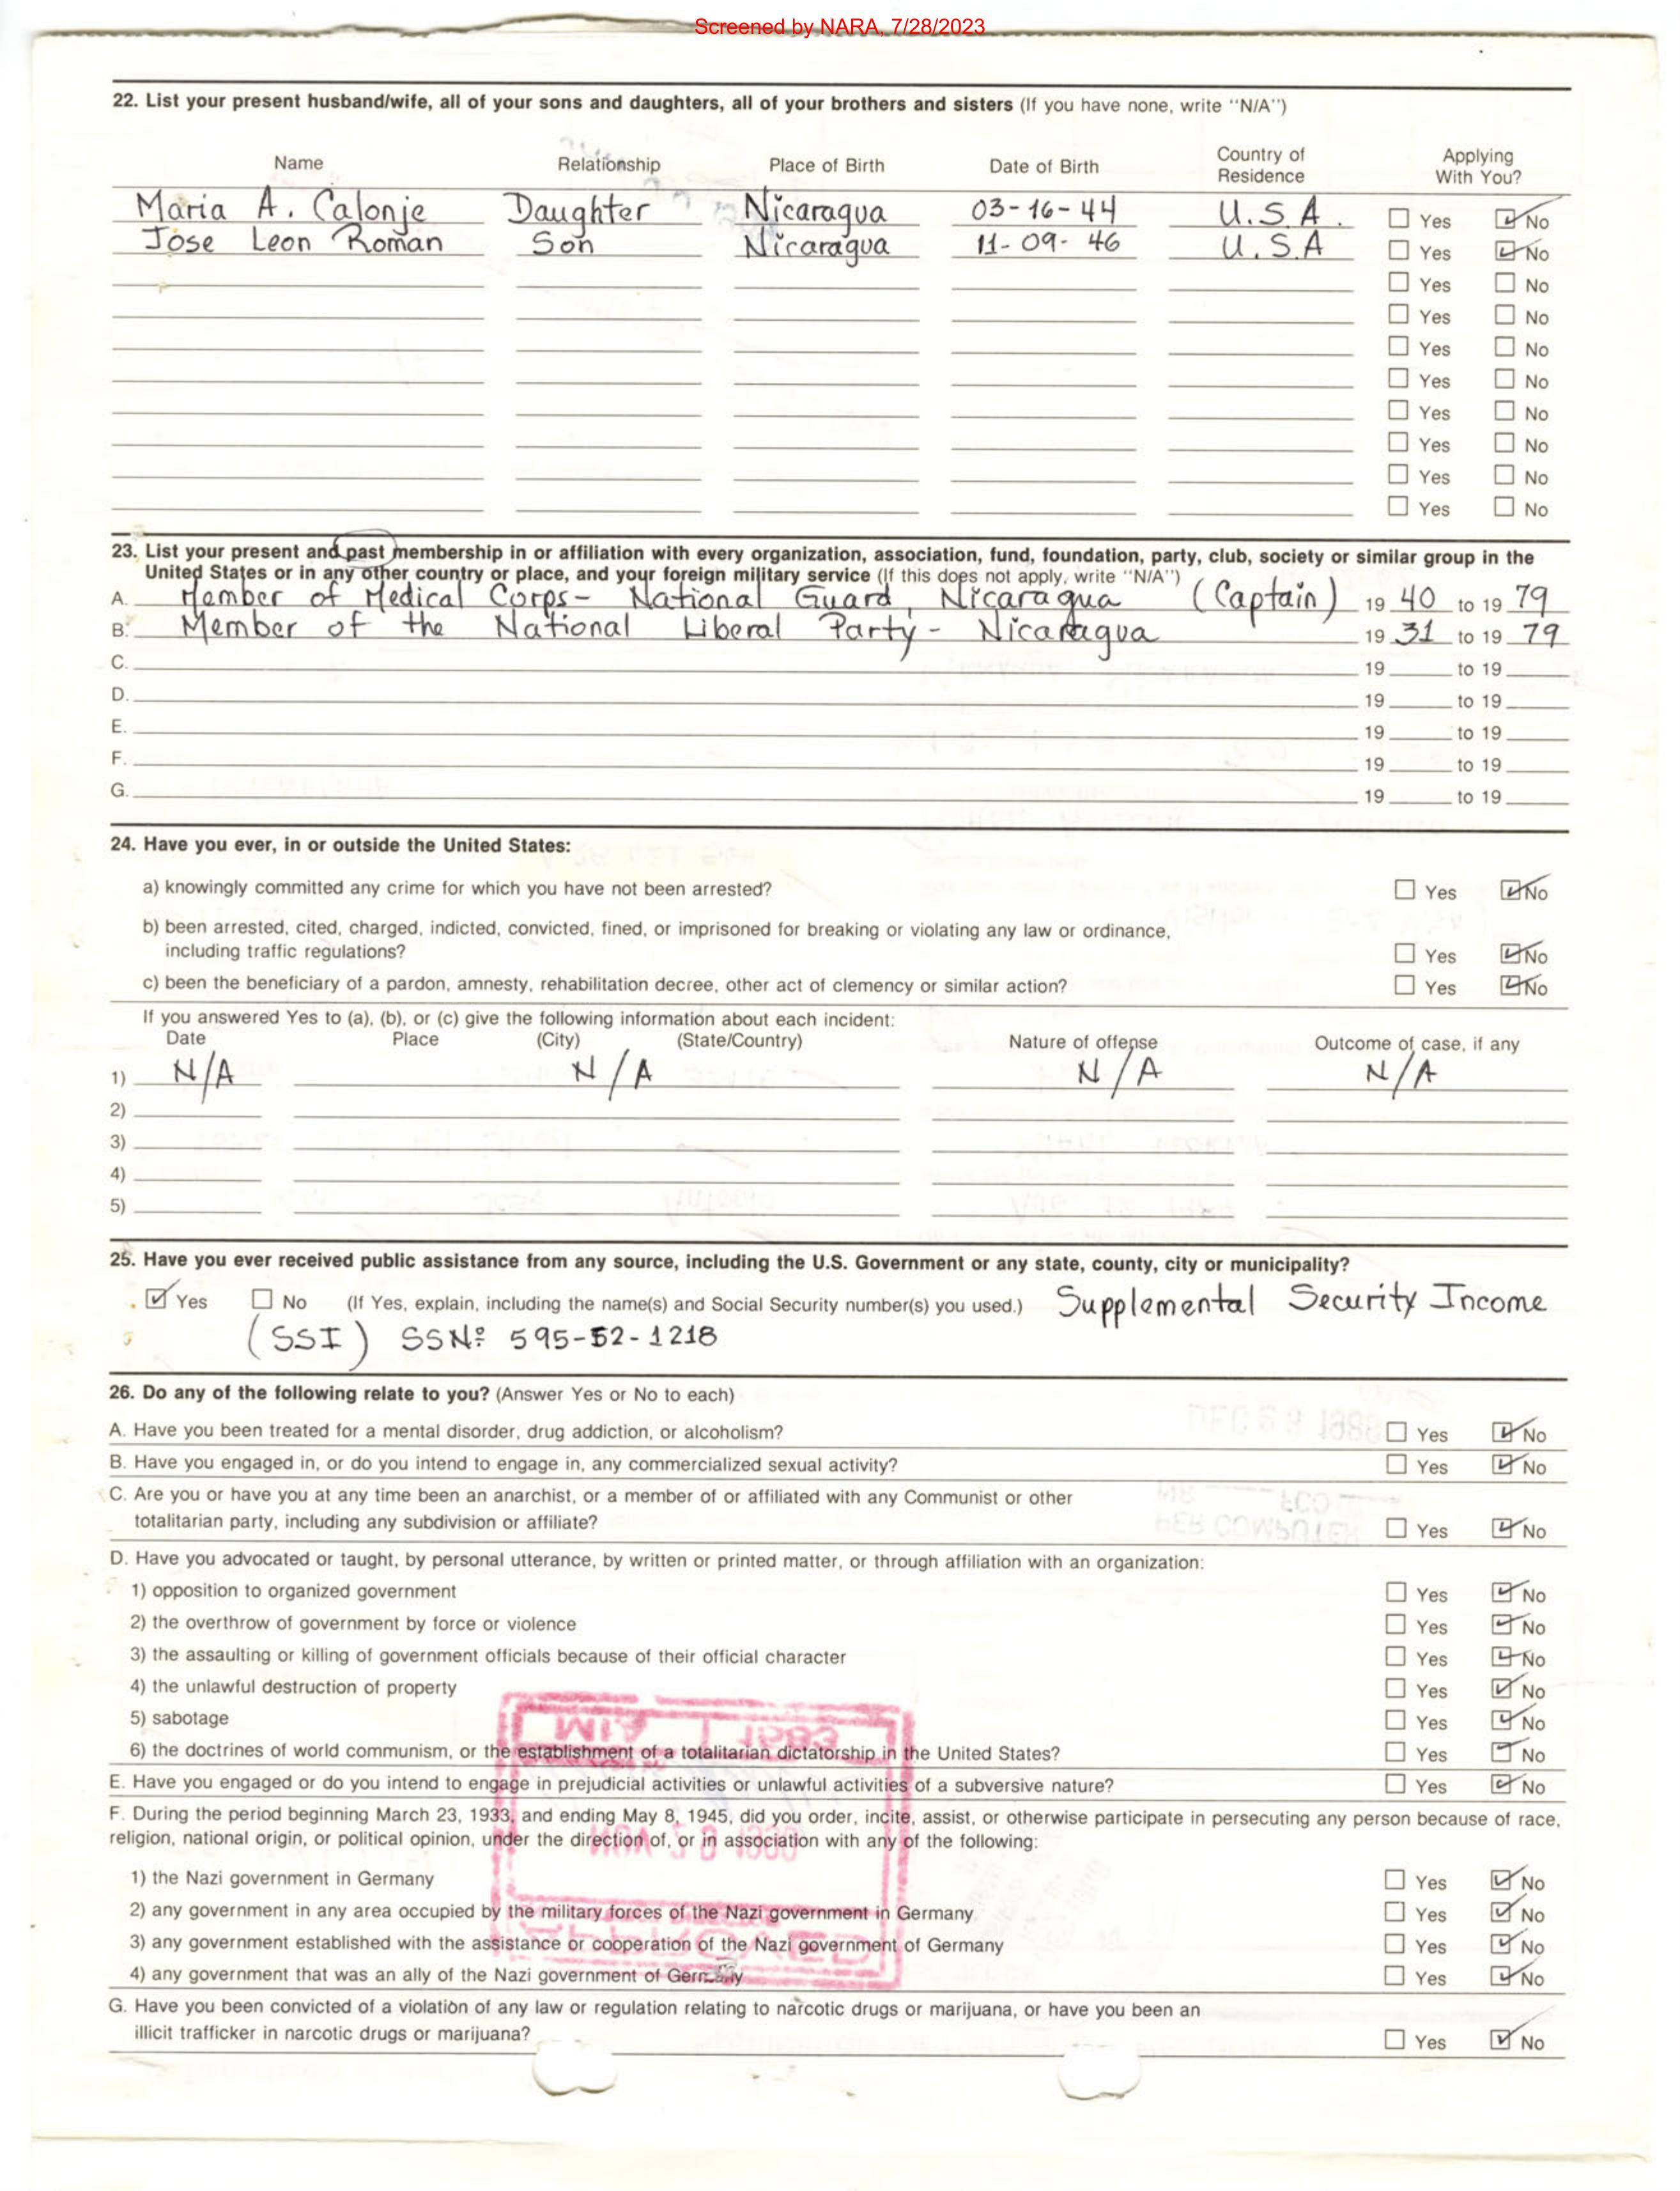 Screened by NARA, 7/28/2023
22. List your present husband/wife, all of your sons and daughters, all of your brothers and sisters (If you have none, write "N/A")
Name Relationship Place of Birth Date of Birth Country of Residence Applying With You?
Maria A. Calonje Daughter Nicaragua 03-16-44 U.S.A. Yes No
Jose Leon Roman Son Nicaragua 11-09-46 U.S.A Yes No
Yes No
Yes No
Yes No
Yes No
Yes No
Yes No
Yes No
Yes No
23. List your present and past membership in or affiliation with every organization, association, fund, foundation, party, club, society or similar group in the
United States or in any other country or place, and your foreign military service (If this does not apply, write "N/A")
A. Member of Medical Corps- National Guard, Nicaragua (Captain) 19 40 to 19 79
B. Member of the National Liberal Party- Nicaragua 19 31 to 19 79
C. 19 to 19
D. 19 to 19
E. 19 to 19
F. 19 to 19
G. 19 to 19
24. Have you ever, in or outside the United States:
a) knowingly committed any crime for which you have not been arrested? Yes No
b) been arrested, cited, charged, indicted, convicted, fined, or imprisoned for breaking or violating any law or ordinance,
including traffic regulations? Yes No
c) been the beneficiary of a pardon, amnesty, rehabilitation decree, other act of clemency or similar action? Yes No
If you answered Yes to (a), (b), or (c) give the following information about each incident:
Date Place (City) (State/Country) Nature of offense Outcome of case, if any
1) N/A N/A N/A N/A
2)
3)
4)
5)
25. Have you ever received public assistance from any source, including the U.S. Government or any state, county, city or municipality?
Yes No (If Yes, explain, including the name(s) and Social Security number(s) you used.) Supplemental Security Income
(SSI) SSNº 595-52-1218
26. Do any of the following relate to you? (Answer Yes or No to each)
A. Have you been treated for a mental disorder, drug addiction, or alcoholism? Yes No
B. Have you engaged in, or do you intend to engage in, any commercialized sexual activity? Yes No
C. Are you or have you at any time been an anarchist, or a member of or affiliated with any Communist or other
totalitarian party, including any subdivision or affiliate? Yes No
D. Have you advocated or taught, by personal utterance, by written or printed matter, or through affiliation with an organization:
1) opposition to organized government Yes No
2) the overthrow of government by force or violence Yes No
3) the assaulting or killing of government officials because of their official character Yes No
4) the unlawful destruction of property Yes No
5) sabotage Yes No
6) the doctrines of world communism, or the establishment of a totalitarian dictatorship in the United States? Yes No
E. Have you engaged or do you intend to engage in prejudicial activities or unlawful activities of a subversive nature? Yes No
F. During the period beginning March 23, 1933, and ending May 8, 1945, did you order, incite, assist, or otherwise participate in persecuting any person because of race,
religion, national origin, or political opinion, under the direction of, or in association with any of the following:
1) the Nazi government in Germany Yes No
2) any government in any area occupied by the military forces of the Nazi government in Germany Yes No
3) any government established with the assistance or cooperation of the Nazi government of Germany Yes No
4) any government that was an ally of the Nazi government of Germany Yes No
G. Have you been convicted of a violation of any law or regulation relating to narcotic drugs or marijuana, or have you been an
illicit trafficker in narcotic drugs or marijuana? Yes No